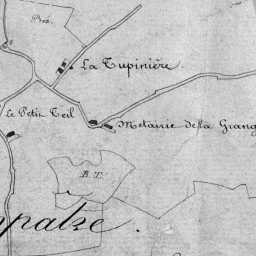 Prés
La Tupinière
Le Petit Teil
Metairie de la Grang
B. T.
mpatze.